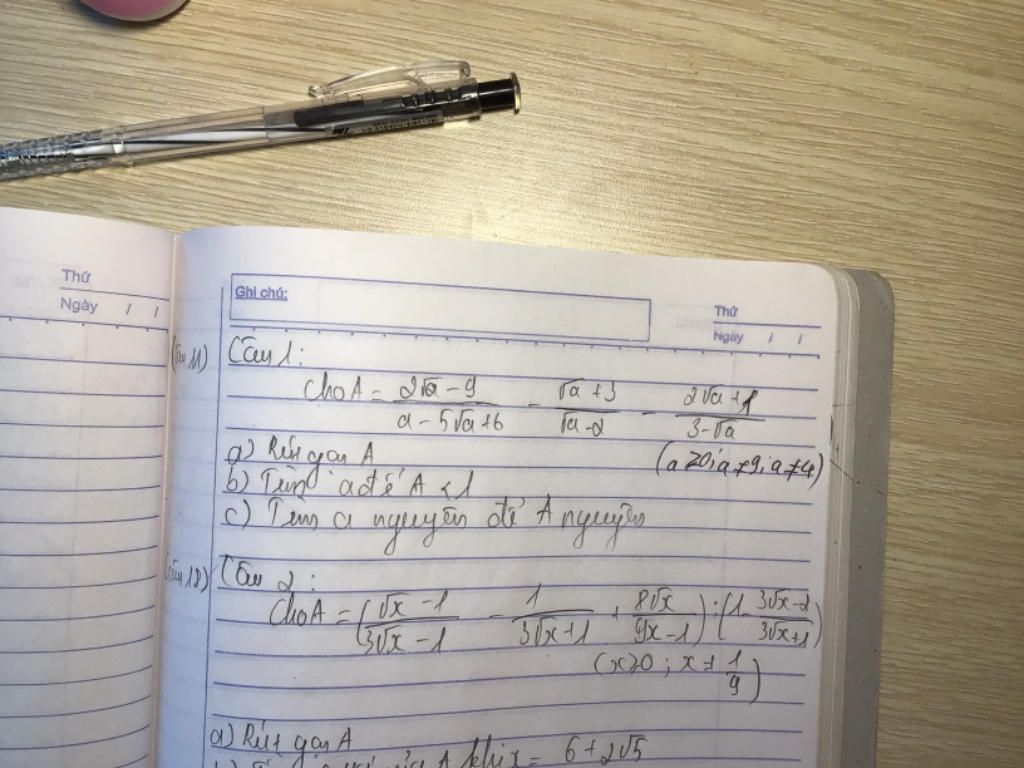 Thứ
Ngày / /
Ghi chú:
Thứ
Ngày / /
(Câu 11) Câu 1:
Cho A = (2√a - 9)/(a - 5√a + 6) - (√a + 3)/(√a - 2) - (2√a + 1)/(3 - √a)
a) Rút gọn A (a ≥ 0; a ≠ 9; a ≠ 4)
b) Tìm a để A < 1
c) Tìm a nguyên để A nguyên
(Câu 18) Câu 2:
Cho A = ((√x - 1)/(3√x - 1) - 1/(3√x + 1) + 8√x/(9x - 1)) : (1 - (3√x - 2)/(3√x + 1))
(x ≥ 0; x ≠ 1/9)
a) Rút gọn A
A khi x = 6 + 2√5